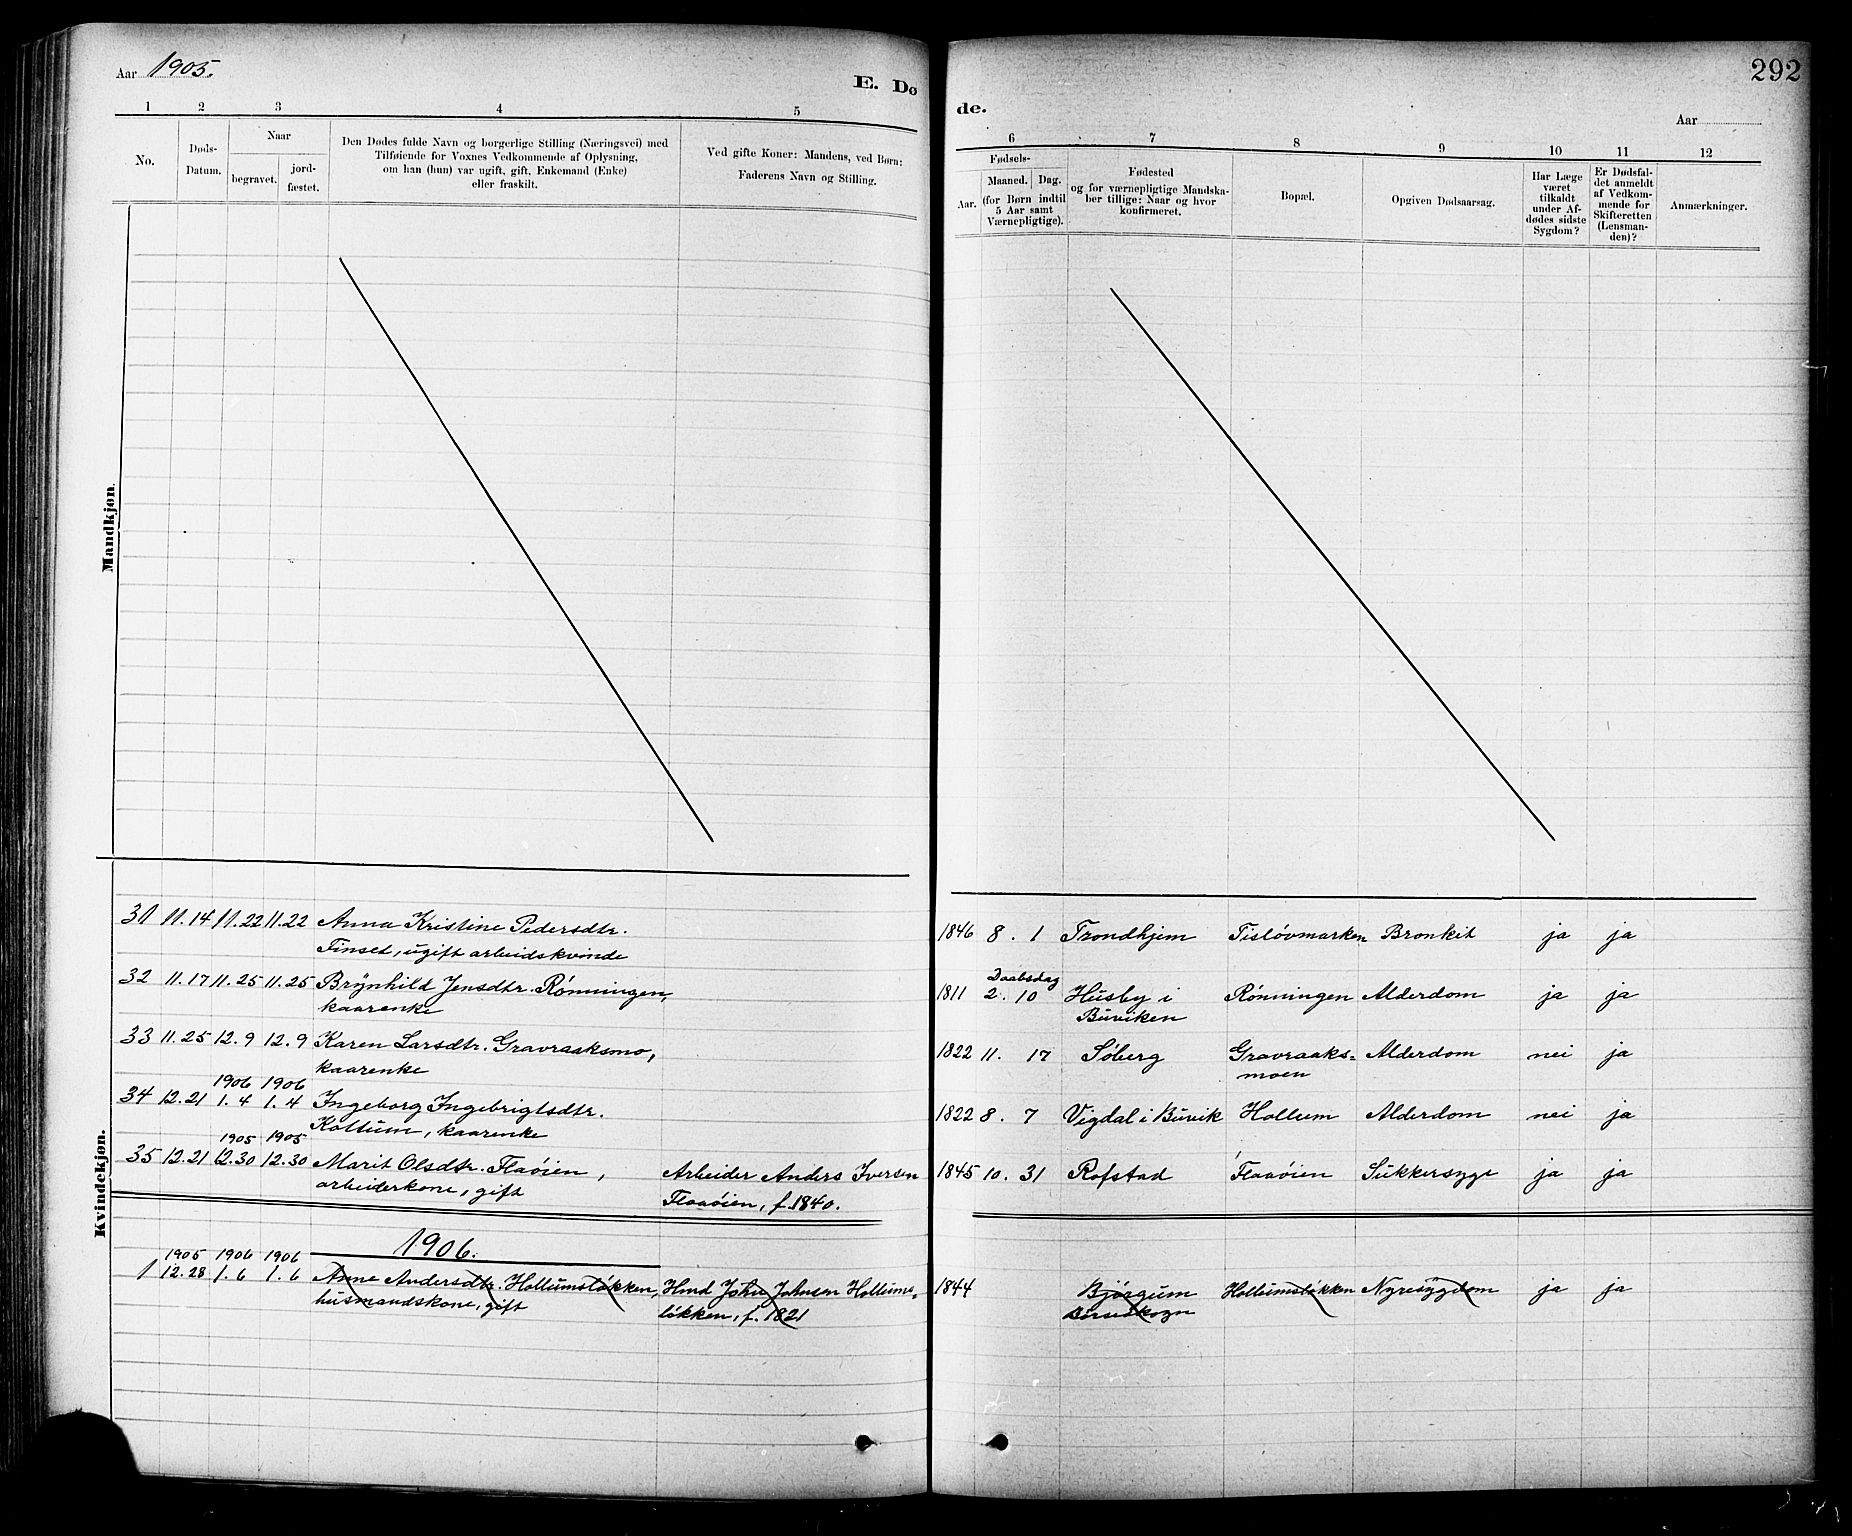 Aar 1905.
E. Do
de.
292
Aar
1 2 3 4 5
6 7 8 9 10 11 12
No.
Døds-
Datum.
Naar
begravet.
jord-
fæstet.
Den Dødes fulde Navn og borgerlige Stilling (Næringsvei) med
Tilføiende for Voxnes Vedkommende af Oplysning,
om han (hun) var ugift, gift, Enkemand (Enke)
eller fraskilt.
Ved gifte Koner: Mandens, ved Børn:
Faderens Navn og Stilling.
Fødsels-
Aar.
Maaned. Dag.
(for Børn indtil
5 Aar samt
Værnepligtige).
Fødested
og for værnepligtige Mandska-
ber tillige: Naar og hvor
konfirmeret.
Bopæl.
Opgiven Dødsaarsag.
Har Læge
været
tilkaldt
under Af-
dødes sidste
Sygdom?
Er Dødsfal-
det anmeldt
af Vedkom-
mende for
Skifteretten
(Lensman-
den)?
Anmærkninger.
Mandkjøn.
Kvindekjøn.
31 11.14 11.22 11.22 Anna Kristine Pedersdtr. 1846 8. 1 Trondhjem Tisløvmarken Bronkit ja ja
Tinset, ugift arbeidskvinde
Daabsdag
32 11.17 11.25 11.25 Brynhild Jensdtr. Rønningen, 1811 2. 10 Husby i Rønningen Alderdom ja ja
kaarenke Buviken
33 11.25 12.9 12.9 Karen Larsdtr. Gravraaksmo, 1822 11. 17 Søberg Gravraaks- Alderdom nei ja
kaarenke moen
1906 1906
34 12.21 1.4 1.4 Ingeborg Ingebrigtsdtr. 1822 8. 7 Vigdal i Buvik Hollum Alderdom nei ja
Hollum, kaarenke
1905 1905
35 12.21 12.30 12.30 Marit Olsdtr. Flaaøien, Arbeider Anders Iversen 1845 10. 31 Rofstad Flaaøien Sukkersyge ja ja
arbeiderkone, gift Flaaøien, f. 1840.
1906.
1905 1906 1906
1 12.28 1.6 1.6 Anne Andersdtr. Hollumsløkken, Hmd John Johnsen Hollums- 1844 Bjørgum Hollumsløkken Nyresygdom ja ja
husmandskone, gift løkken, f. 1821 Børseskogn